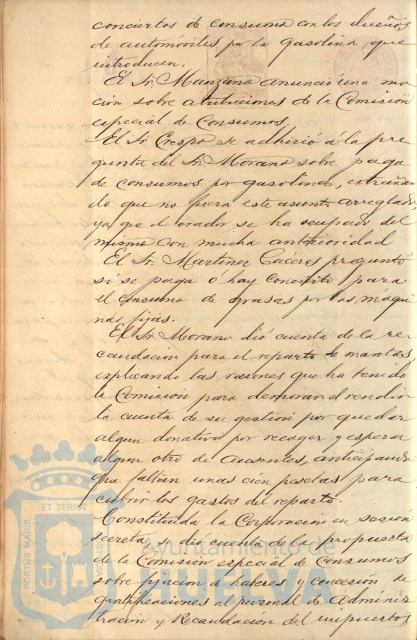 conciertos de Consumo con los dueños
de automóviles por la gasolina que
introducen.
El Sr. Manzano anunció una mo
ción sobre atribuciones de la Comisión
especial de Consumos.
El Sr. Crespo se adhirió á la pre
gunta del Sr. Morano sobre paga
de consumos por gasolina, extrañan
do que no fuera este asunto arreglado
ya que el orador se ha ocupado del
mismo con mucha anterioridad
El Sr. Martinez Caceres preguntó
si se paga ó hay Concierto para
el consumo de grasas por las maqui
nas fijas.
El Sr. Morano dió cuenta de la re
caudación para el reparto de mantas,
explicando las razones que ha tenido
la Comisión para demorar el rendir
la cuenta de su gestión por quedar
algun donativo por recoger y esperar
algun otro de ausentes, anticipando
que faltan unas cien pesetas para
cubrir los gastos del reparto.
Constituida la Corporacion en sesión
secreta, se dio cuenta de la propuesta
de la Comision especial de Consumos
sobre fijacion de haberes y concesion de
gratificaciones al personal de Adminis
tracion y Recaudacion del impuesto,
PORTUS MARIS
ET TERRAE
Ayuntamiento de
HUELVA